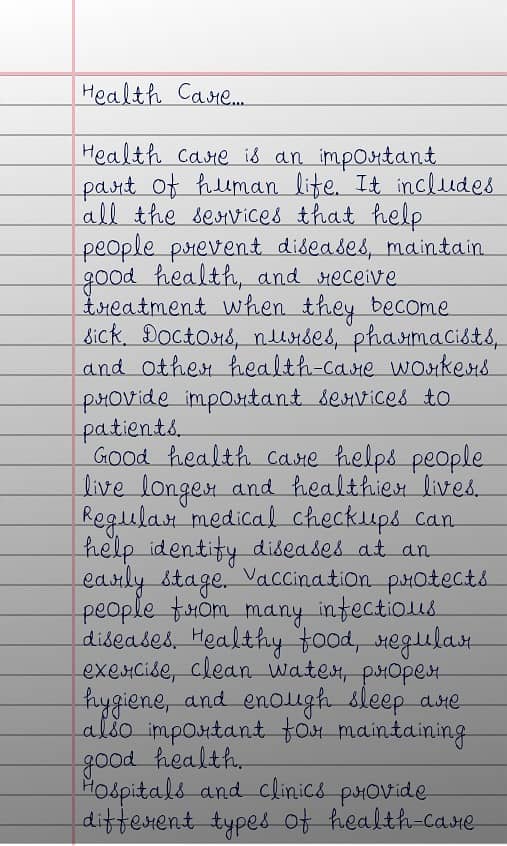 Health Care...
Health care is an important
part of human life. It includes
all the services that help
people prevent diseases, maintain
good health, and receive
treatment when they become
sick. Doctors, nurses, pharmacists,
and other health-care workers
provide important services to
patients.
Good health care helps people
live longer and healthier lives.
Regular medical checkups can
help identify diseases at an
early stage. Vaccination protects
people from many infectious
diseases. Healthy food, regular
exercise, clean water, proper
hygiene, and enough sleep are
also important for maintaining
good health.
Hospitals and clinics provide
different types of health-care